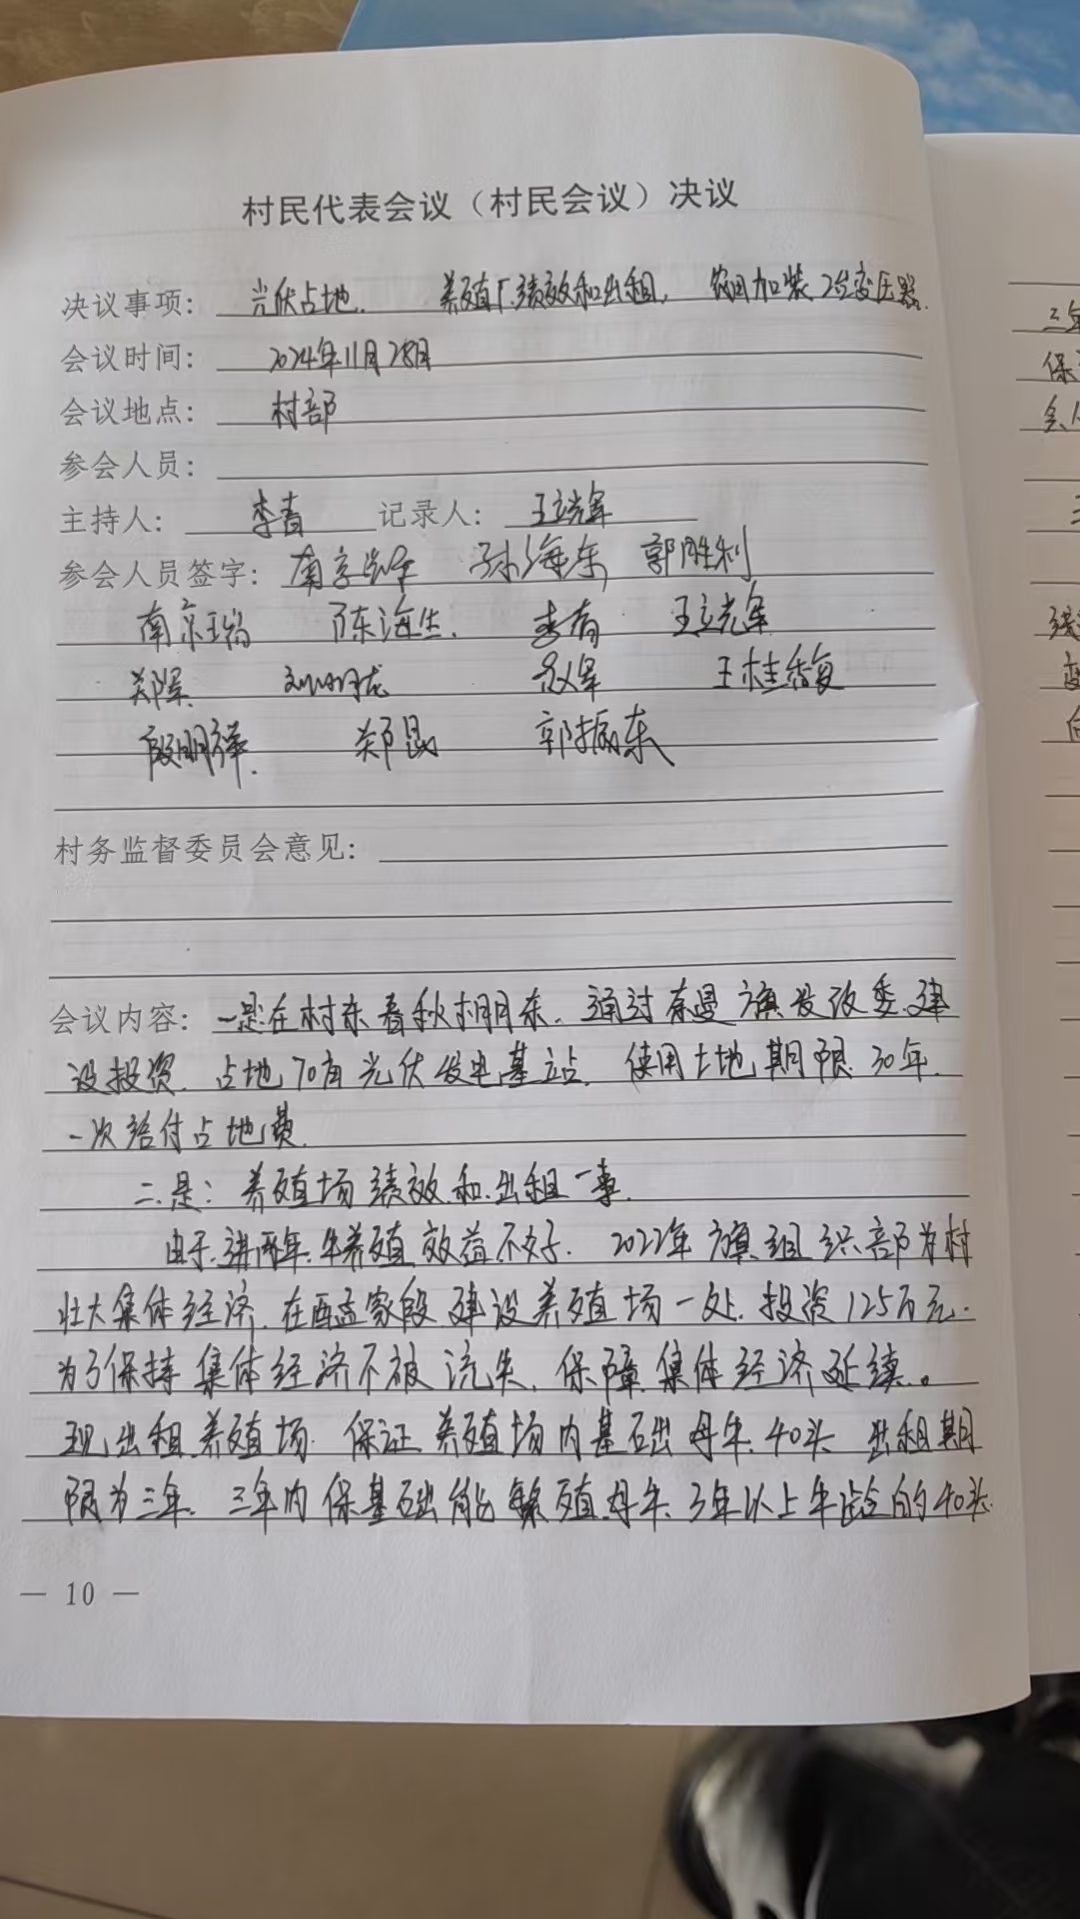 村民代表会议（村民会议）决议
决议事项： 光伏占地. 养殖厂绩效和出租, 农田加装2台变压器.
会议时间： 2024年11月28日
会议地点： 村部
参会人员：
主持人： 李春 记录人： 王立光军
参会人员签字： 孙海东 郭胜利
南京瑞 陈海生. 李春 王立光军
刘明龙 王桂馥
殷明祥. 郑昆 郭振东
村务监督委员会意见：
会议内容： 一是在村东春秋棚东. 通过奈曼旗发改委建
设投资. 占地70亩光伏发电基站. 使用土地期限30年.
一次给付占地费.
二.是：养殖场绩效和出租一事.
由于.讲两年.牛养殖效益不好. 2022年旗组织部为村
壮大集体经济.在孟家段建设养殖场一处.投资125万元.
为了保持集体经济不被流失. 保障集体经济延续.。
现出租养殖场. 保证养殖场内基础母牛.40头 出租期
限为三年. 三年内保基础能繁殖母牛.3年以上牛龄的40头.
— 10 —
三年
保
会
三
变